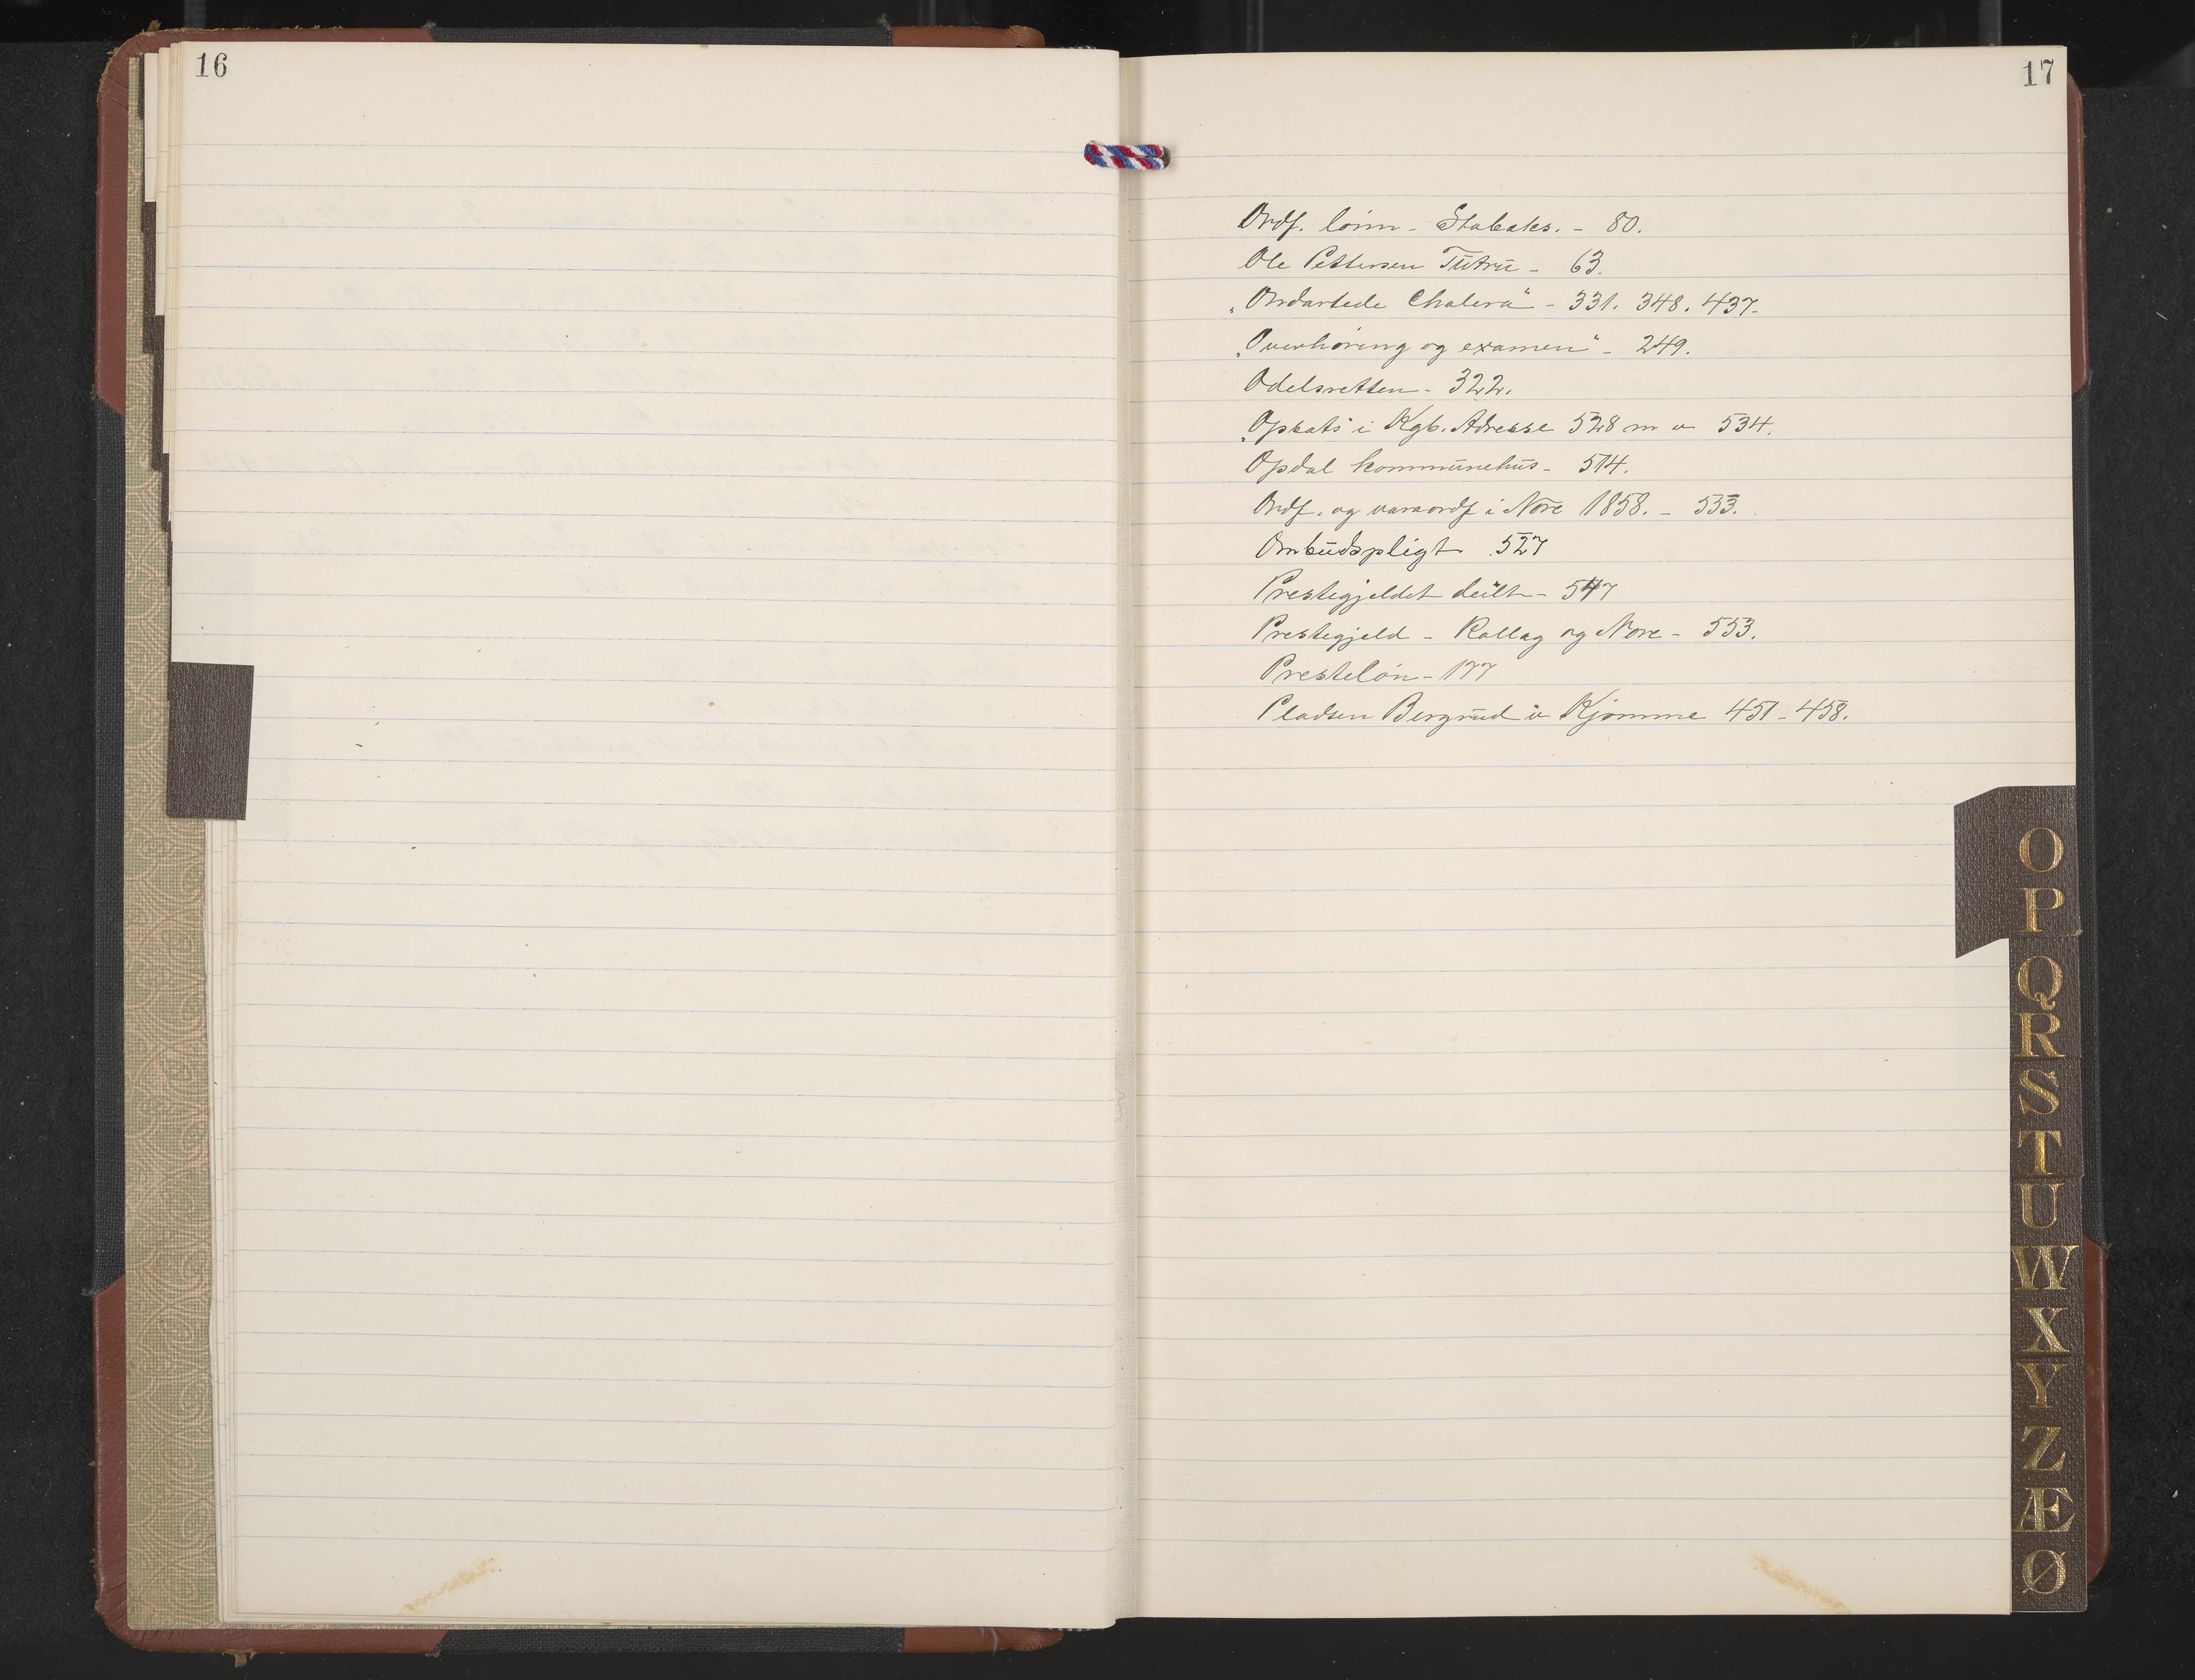 16
17
Ordf. lönn - Stabæks. - 80.
Ole Pettersen Tutru - 63.
„Ondartede Cholera“ - 331. 348. 437.
„Overhöring og examen“ - 249.
Odelsretten - 322.
„Opsats i Kgb. Adresse 528 m v 534.
Opdal kommunehus - 514.
Ordf. og varaordf i Nore 1858. - 533.
Ombudspligt 527
Prestegjeldet deilt - 547
Prestegjeld - Rollag og Nore - 553.
Presteløn - 177
Pladsen Bergrud u Kjømme 451 - 458.
O
P
Q
R
S
T
U
W
X
Y
Z
Æ
Ø